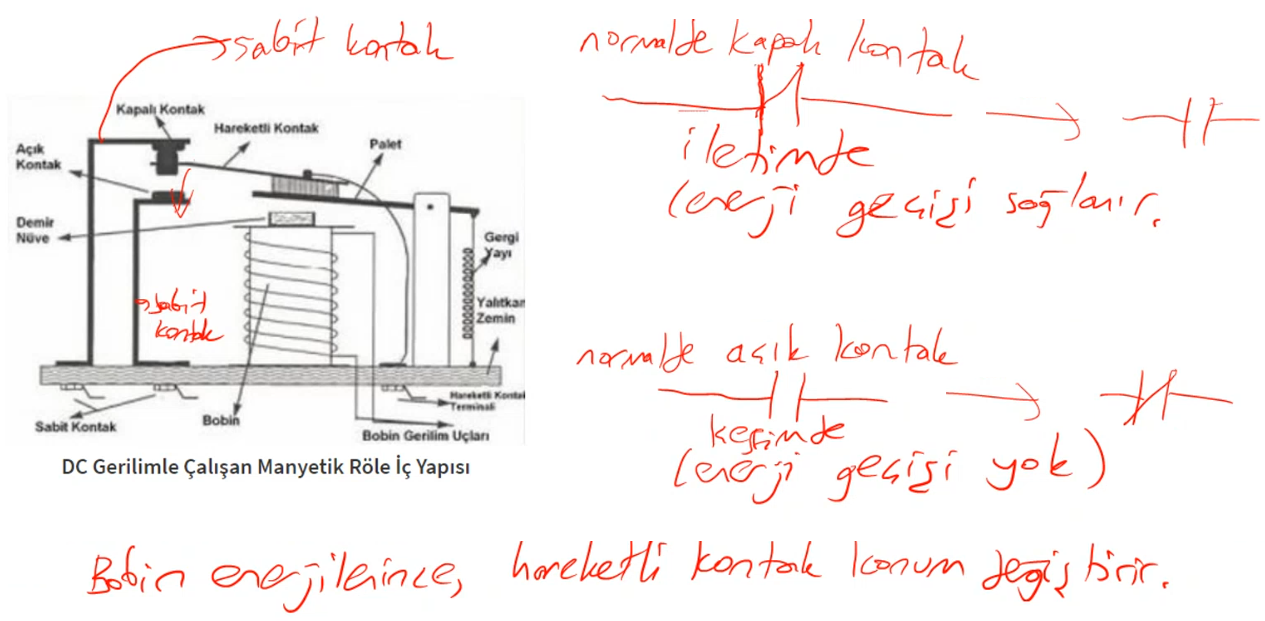 sabit kontak
Kapalı Kontak
Hareketli Kontak
Açık
Kontak
Palet
Demir
Nüve
Gergi
Yayı
sabit
kontak
Yalıtkan
Zemin
Hareketli Kontak
Terminali
Sabit Kontak
Bobin
Bobin Gerilim Uçları
DC Gerilimle Çalışan Manyetik Röle İç Yapısı
normalde kapalı kontak
iletimde
(enerji geçişi sağlanır.
normalde açık kontak
kesimde
(enerji geçişi yok)
Bobin enerjilenince, hareketli kontak konum değiştirir.